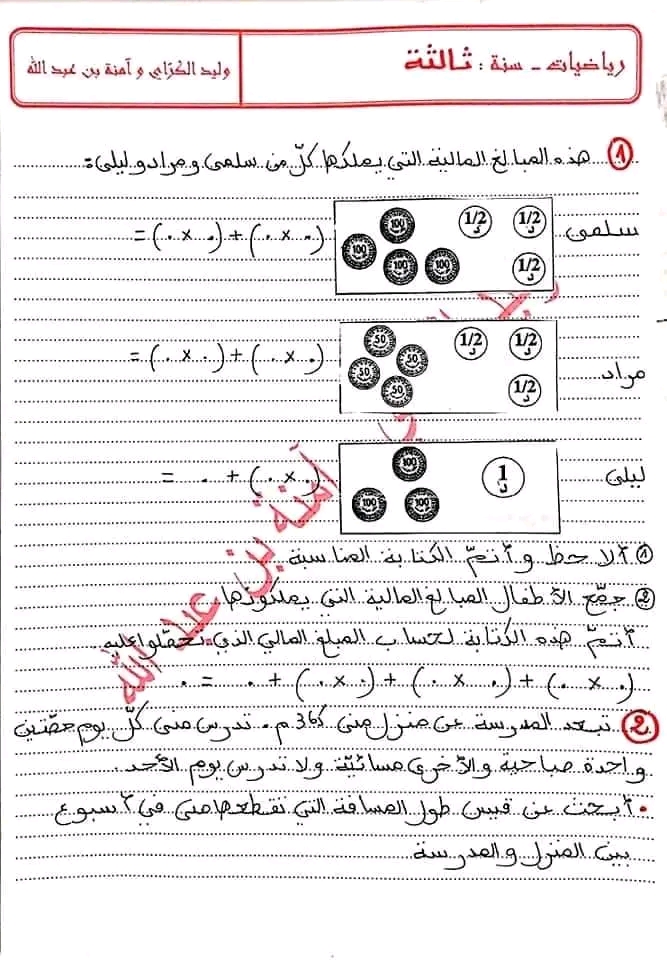 رياضيات - سنة : ثالثة
وليد الكزاي و آمنة بن عبد الله
1 هذه المبالغ المالية التي يملكها كلّ من سلمى ومراد وليلى :
سلمى 1/2 د 1/2 د 1/2 د 100 100 100 100 (. x .) + (. x .) =
مراد 1/2 د 1/2 د 1/2 د 50 50 50 50 (. x .) + (. x .) =
ليلى 1 د 100 100 100 (. x .) + . =
1 ألاحظ وأتمّ الكتابة المناسبة
2 جمّع الأطفال المبالغ المالية التي يملكونها
أتمّ هذه الكتابة لحساب المبلغ المالي الذي تحصّلوا عليه
(. x .) + (. x .) + (. x .) + . = .
2 تبعد المدرسة عن منزل منى 365 م. تدرس منى كلّ يوم حصّتين
واحدة صباحية والأخرى مسائيّة ولا تدرس يوم الأحد.
• أبحث عن قيس طول المسافة التي تقطعها منى في أسبوع
بين المنزل والمدرسة
آمنة بن عبد الله